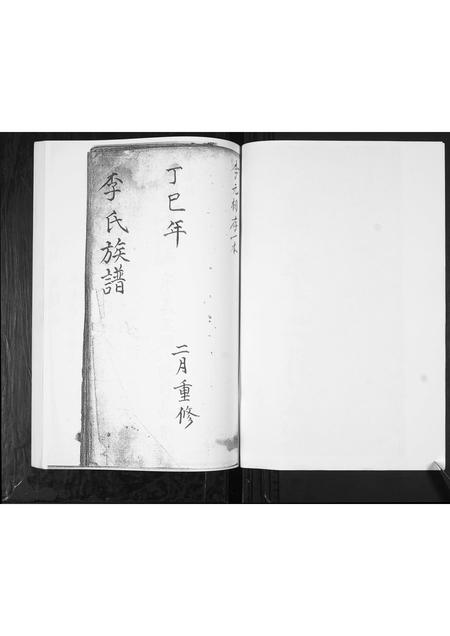 李元相存一本
丁巳年
二月重修
李氏族譜